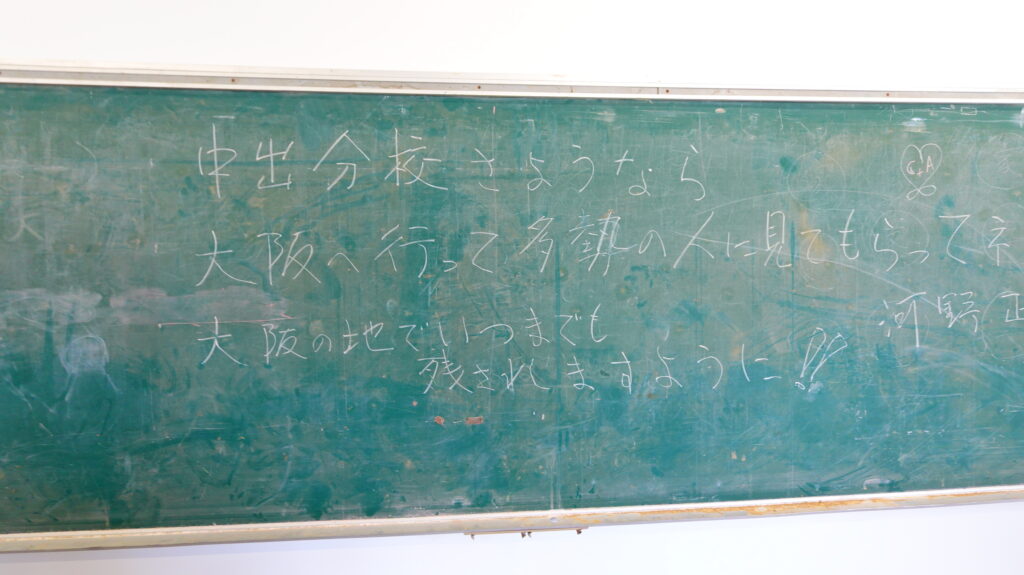 中出分校さようなら
G+A
大阪へ行って多勢の人に見てもらってネ
河野正
大阪の地でいつまでも
残されますように!!